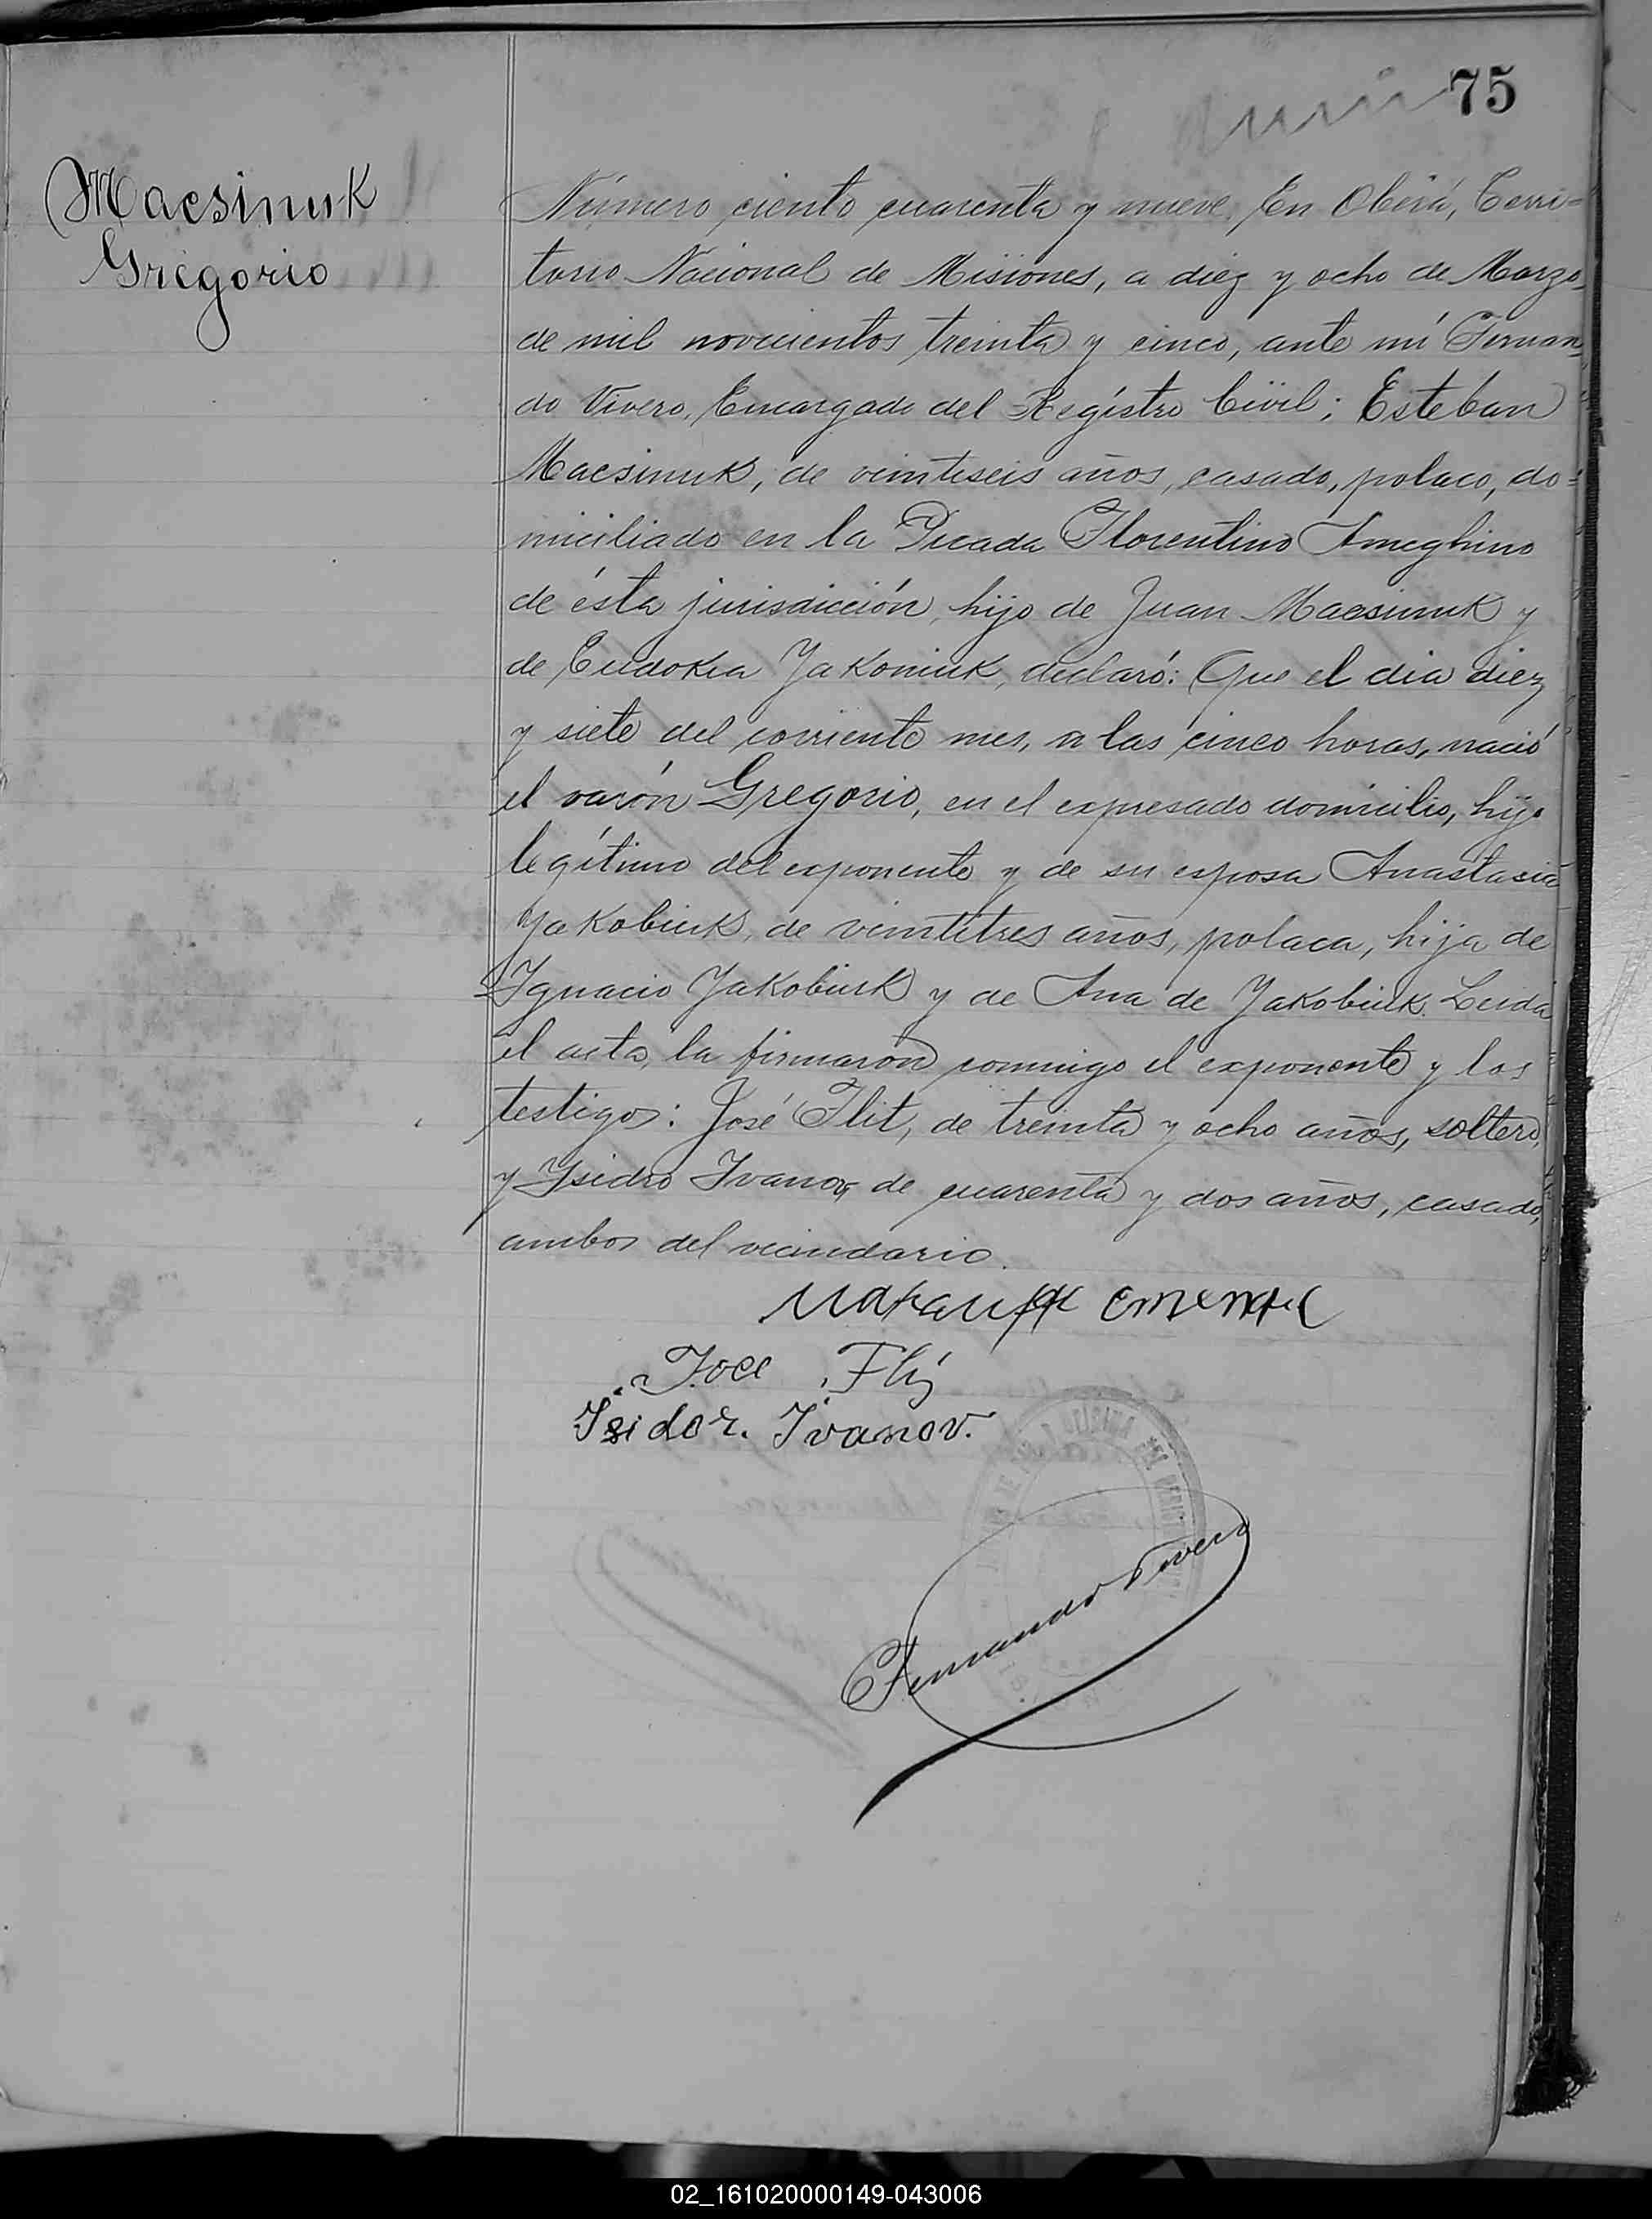 75
Macsimuk
Gregorio
Número ciento cuarenta y nueve. En Oberá, Terri=
torio Nacional de Misiones, a diez y ocho de Marzo
de mil novecientos treinta y cinco, ante mí Fernan=
do Vivero, Encargado del Registro Civil; Esteban
Macsimuk, de veintiseis años, casado, polaco, do=
miciliado en la Picada Florentino Ameghino
de ésta jurisdicción, hijo de Juan Macsimuk y
de Eudokia Yakoniuk, declaró: Que el dia diez
y siete del corriente mes, a las cinco horas, nació
el varón Gregorio, en el expresado domicilio, hijo
legítimo del exponente y de su esposa Anastasia
Yakobiuk, de veintitres años, polaca, hija de
Ygnacio Yakobiuk y de Ana de Yakobiuk. Leida
el acta, la firmaron conmigo el exponente y los
testigos: José Flit, de treinta y ocho años, soltero,
y Ysidro Ivanov, de cuarenta y dos años, casado,
ambos del vecindario.
Joce Flij
Isidor. Ivanov.
Fernando Vivero
02_161020000149-043006